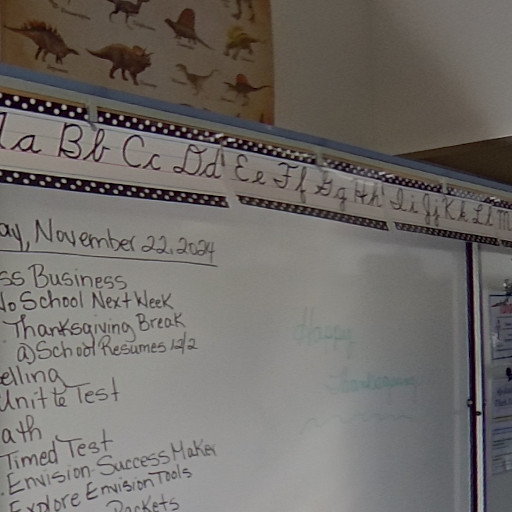 Aa Bb Cc Dd Ee Ff Gg Hh Ii Jj Kk Ll M
ay, November 22, 2024
ss Business
No School Next Week
Thanksgiving Break
a) School Resumes 12/2
elling
Unit 12 Test
ath
Timed Test
Envision Success Maker
Explore Envision Tools
Packets
Happy
Thanksgiving